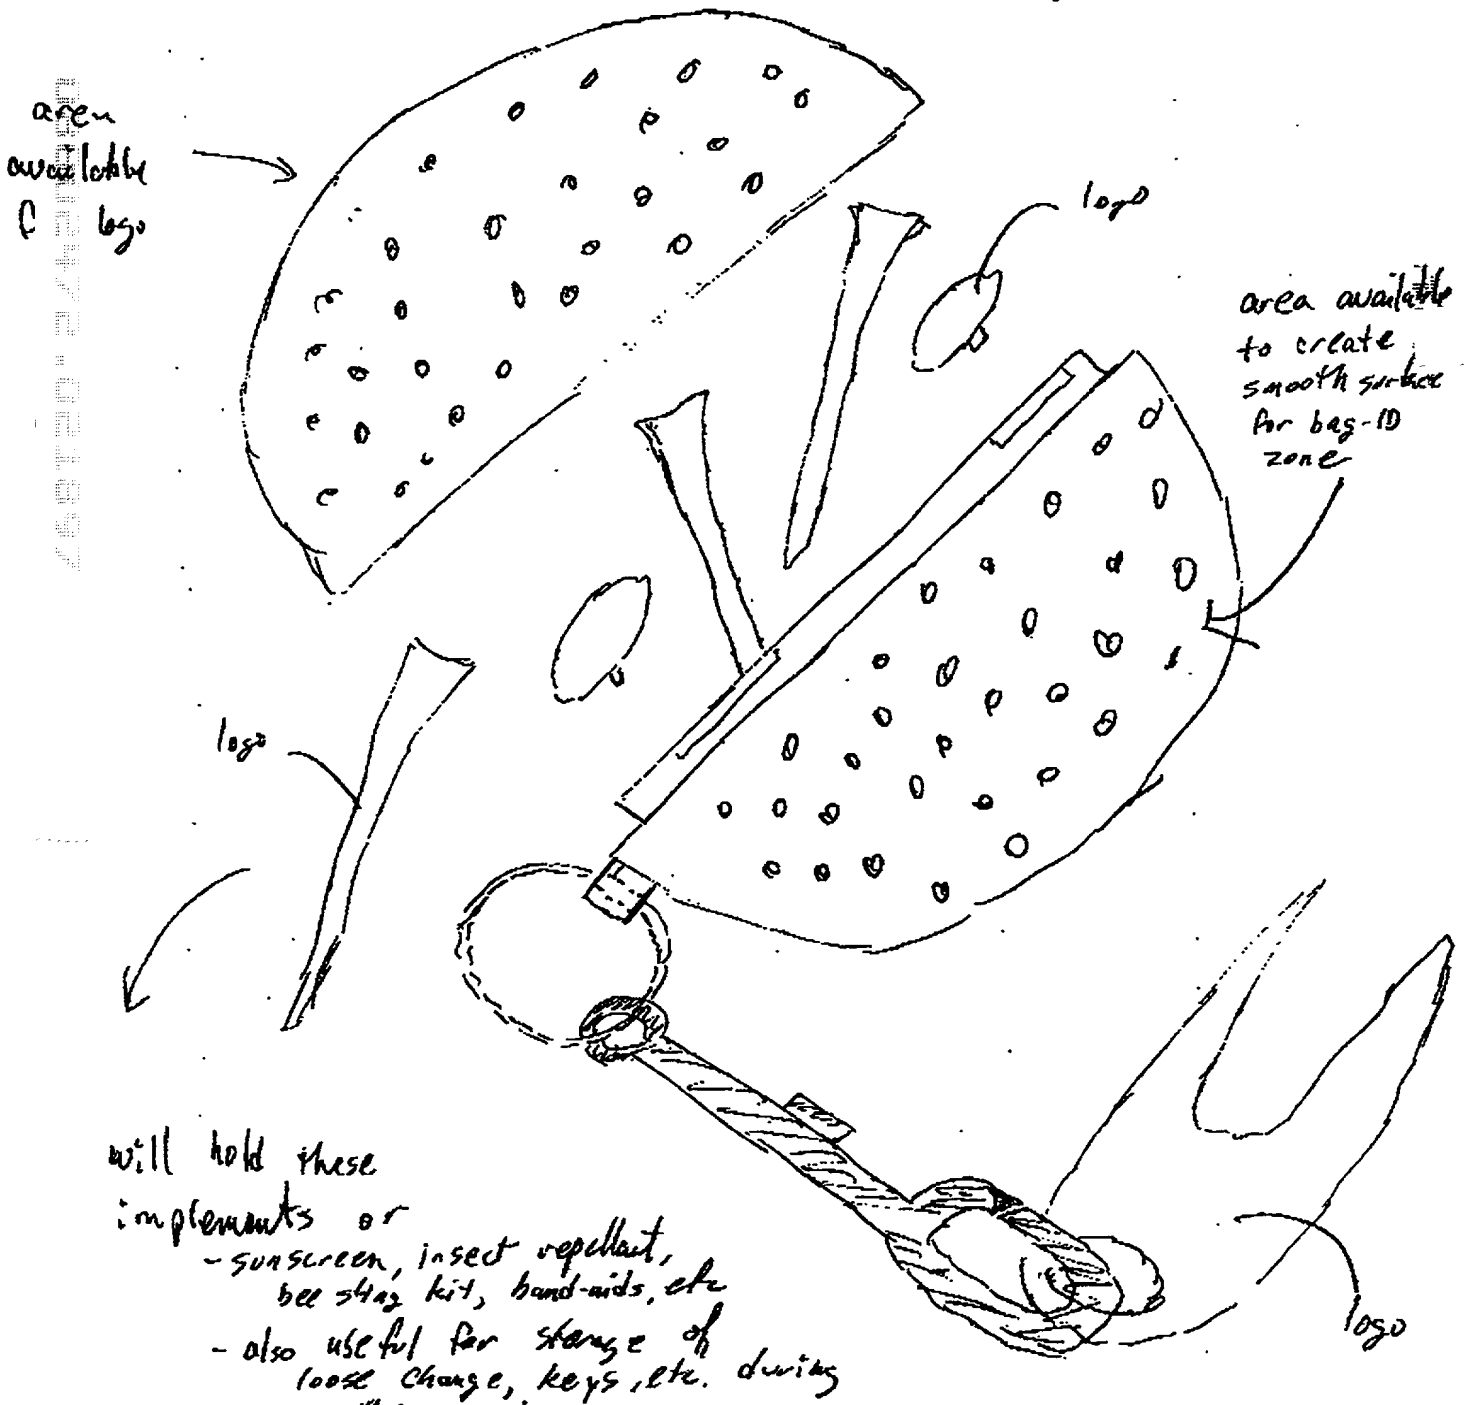 area
available
f logo
logo
area available
to create
smooth surface
for bag-ID
zone
logo
will hold these
implements or
- sunscreen, insect repellant,
bee sting kit, band-aids, etc
- also useful for storage of
loose change, keys, etc. during
logo